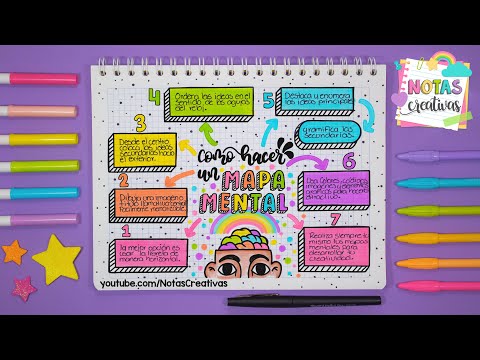 COMO HACER
UN
MAPA
MENTAL
1
la mejor opción es
usar la libreta de
manera horizontal.
2
Dibuja una imagen o
título llamativo
fácilmente
3
Desde el centro
coloca las ideas
secundarias hacia
el exterior.
4
Ordena las ideas en el
sentido de las agujas
del reloj.
5
Destaca y enumera
las ideas principales
y ramifica las
secundarias.
6
Usa Colores,
imágenes y
para hacerlo
7
Realiza siempre tú
mismo tus mapas
mentales para
desarrollar tu
creatividad.
youtube.com/NotasCreativas
NOTAS
creativas